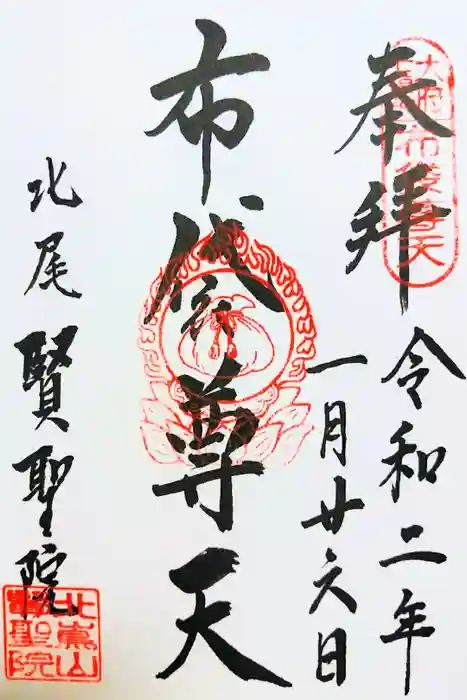 奉拝
令和二年
一月廿六日
布袋尊天
北尾
賢聖院
北嵩山
賢聖院